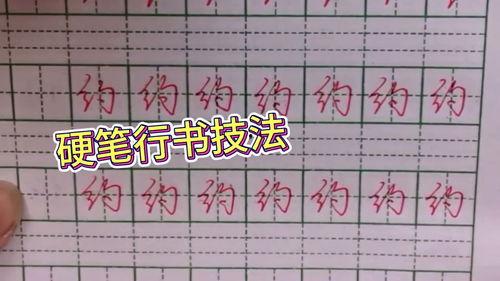 约 约 约 约 约 约 约
硬笔行书技法
约 约 约 约 约 约 约